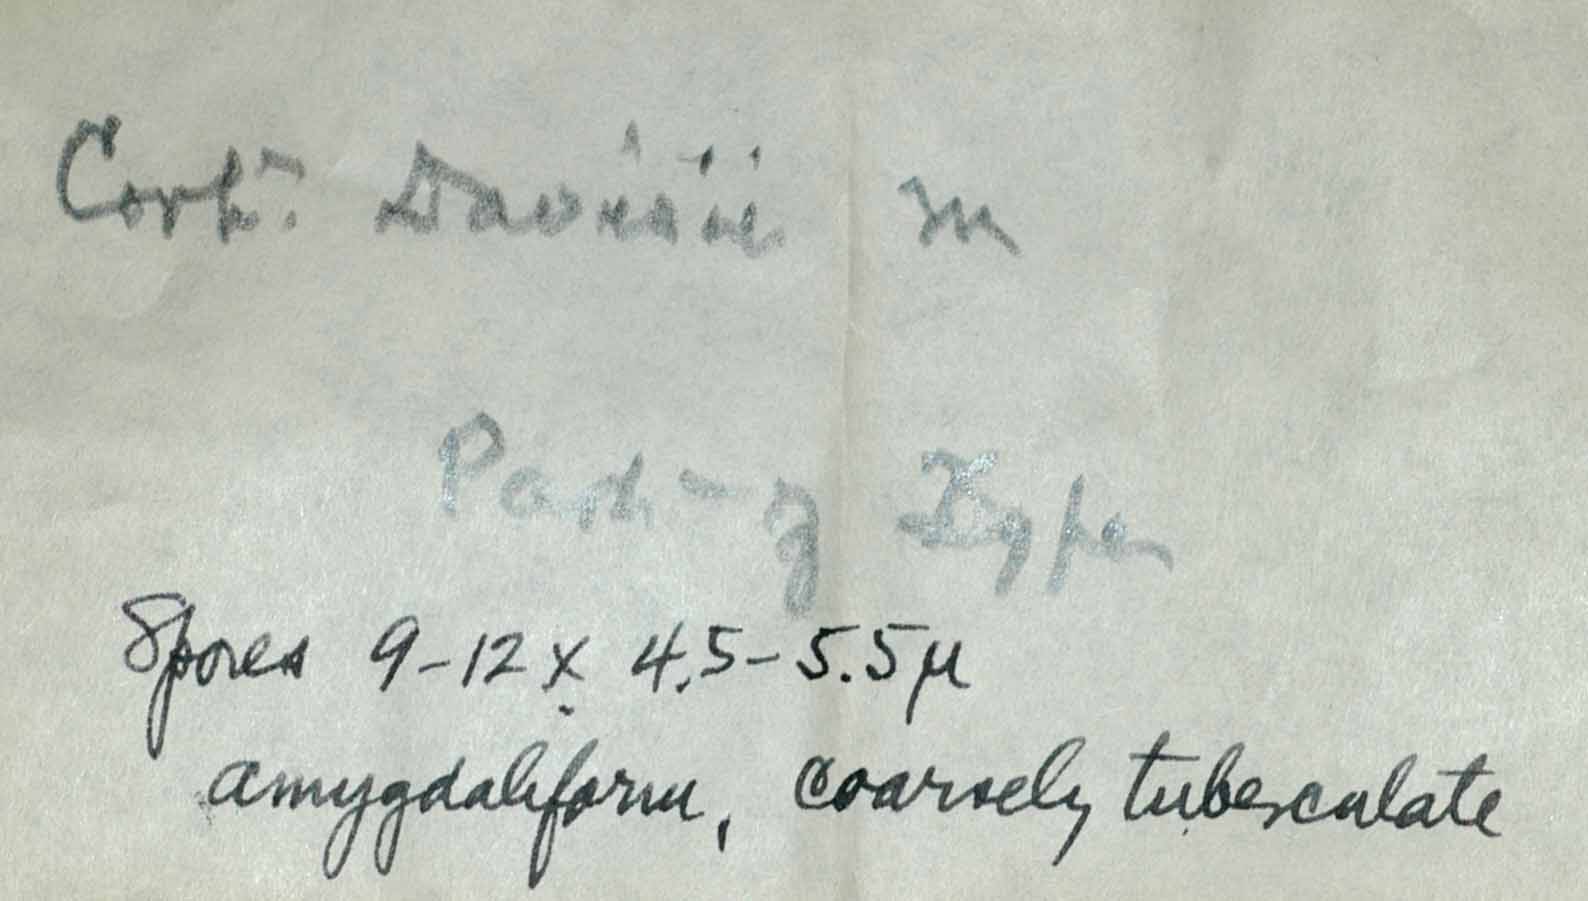 Cort: Davisii m
Part of Type
Spores 9-12 x 4.5-5.5µ
amygdaliform, coarsely tuberculate